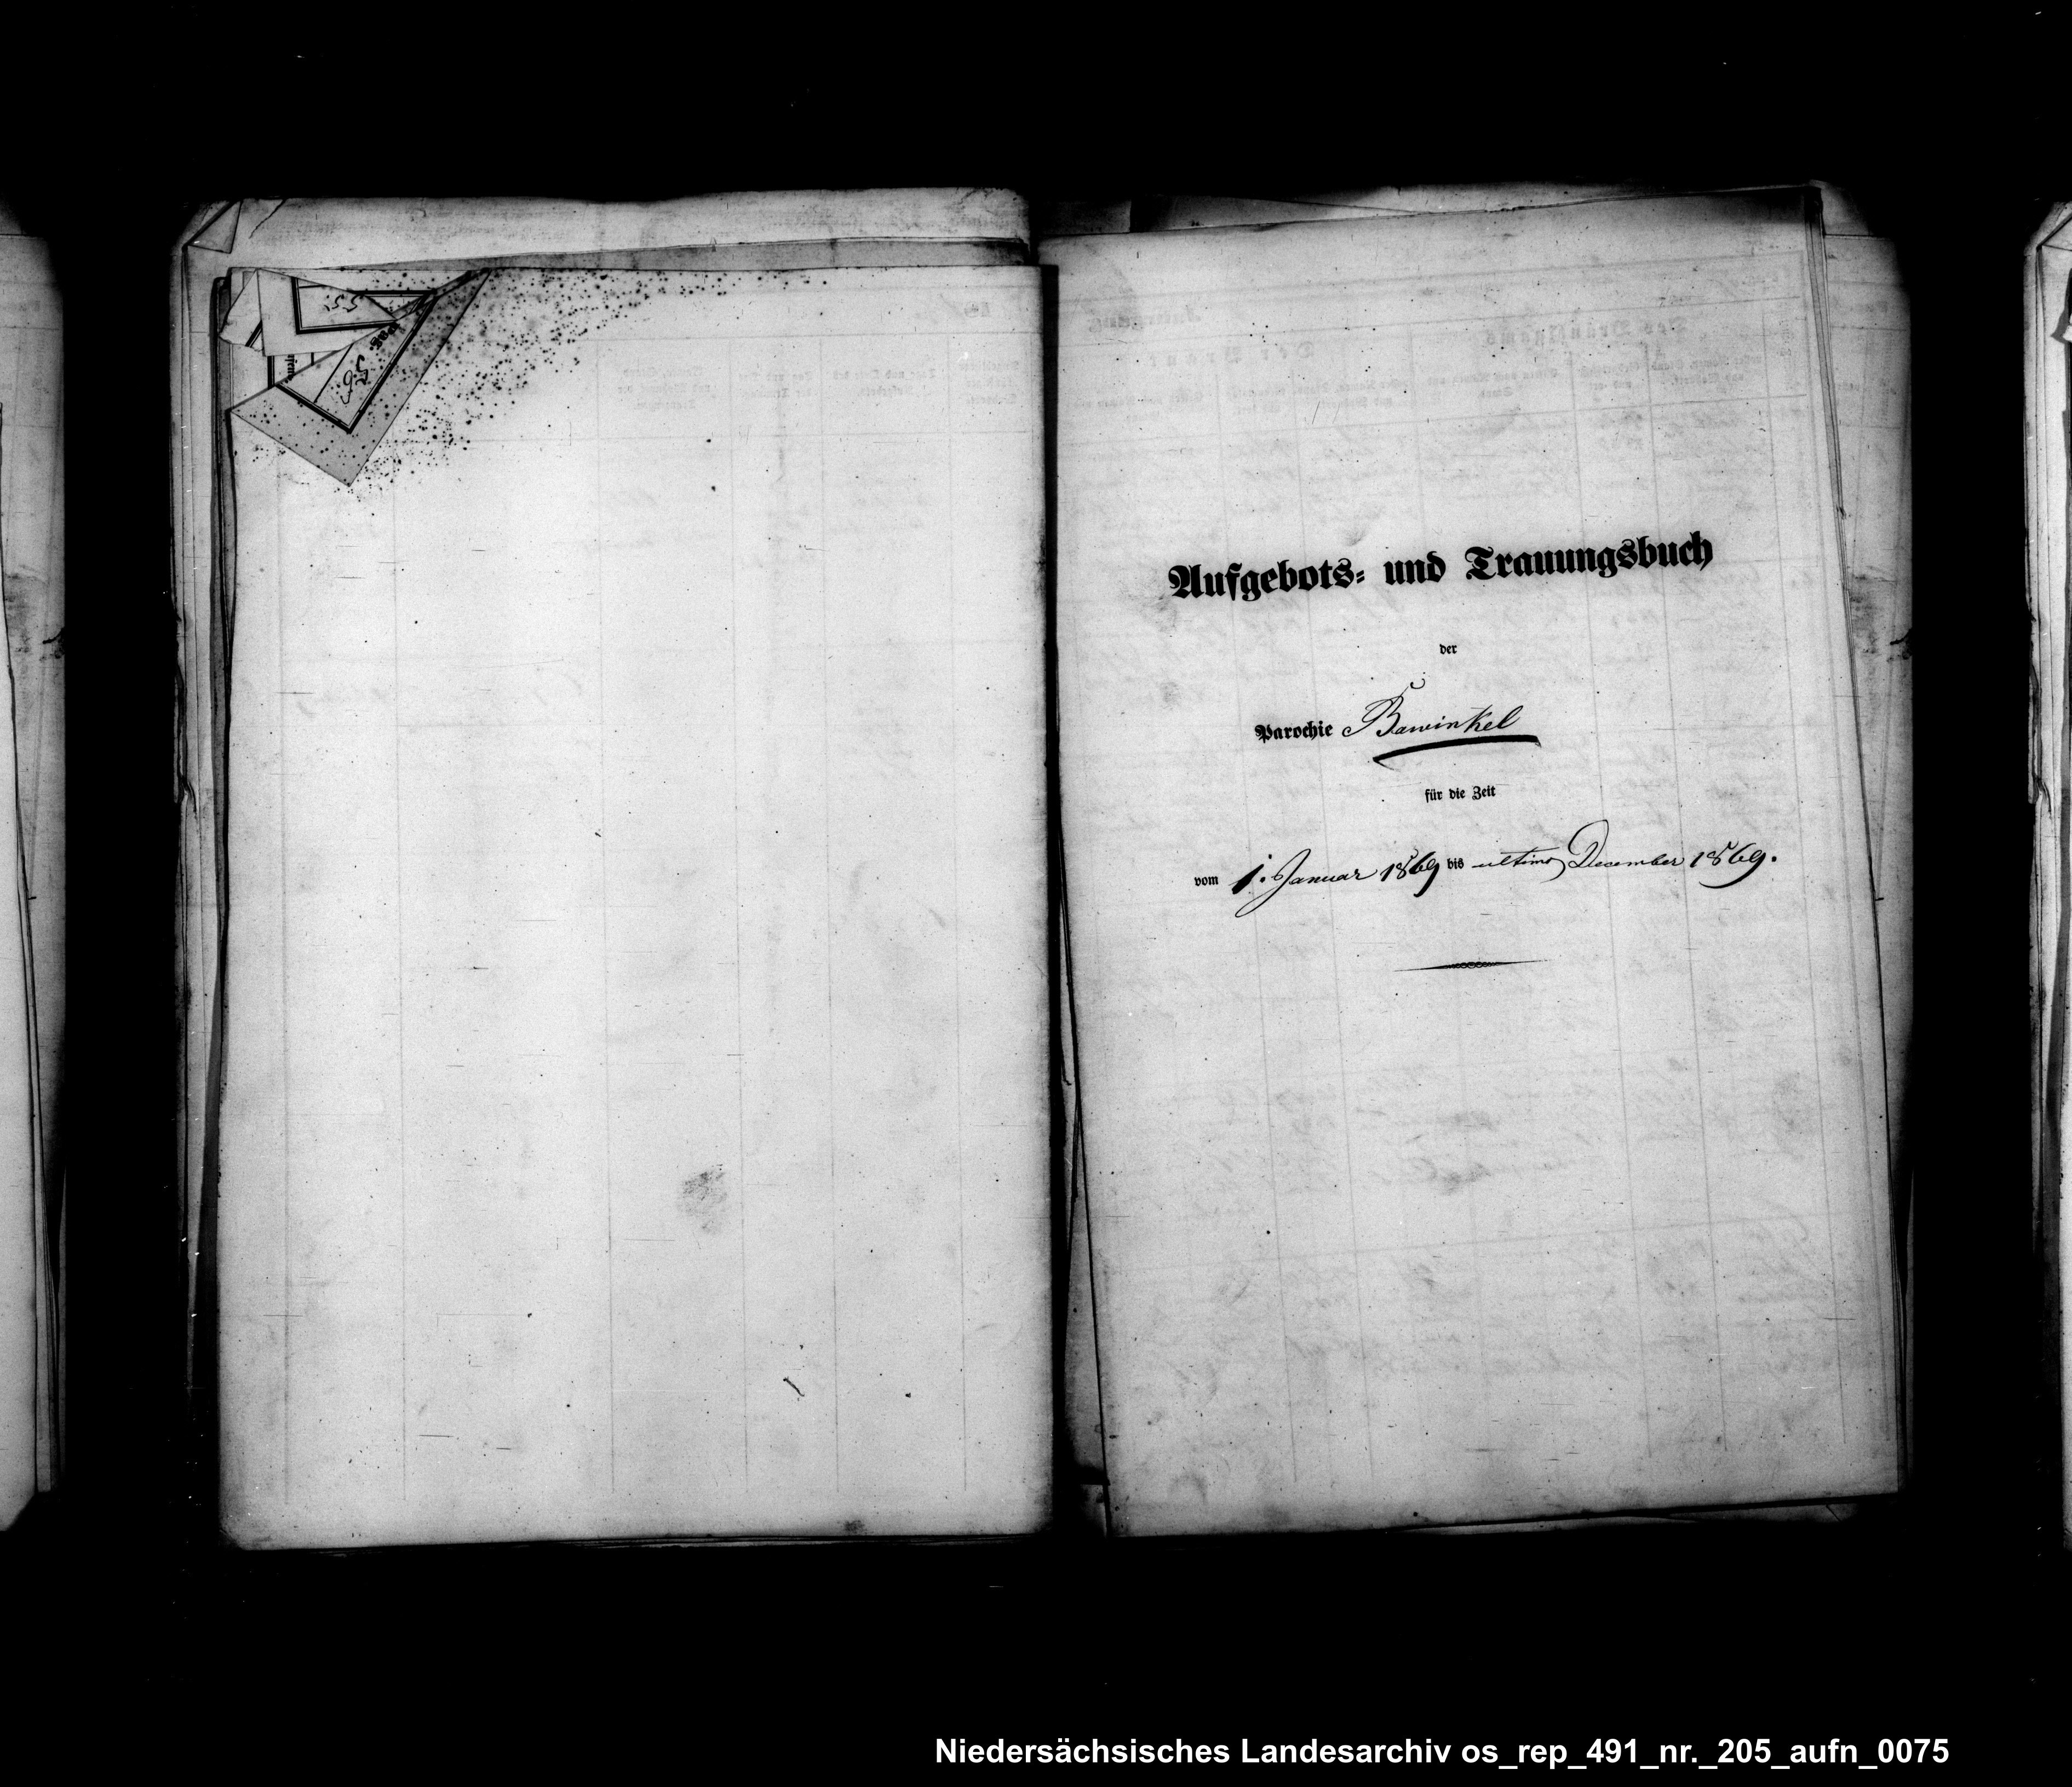 55.
56
Aufgebots= und Trauungsbuch
der
Parochie Bawinkel
für die Zeit
vom 1. Januar 1869 bis ultimo December 1869.
Niedersächsisches Landesarchiv os_rep_491_nr._205_aufn_0075